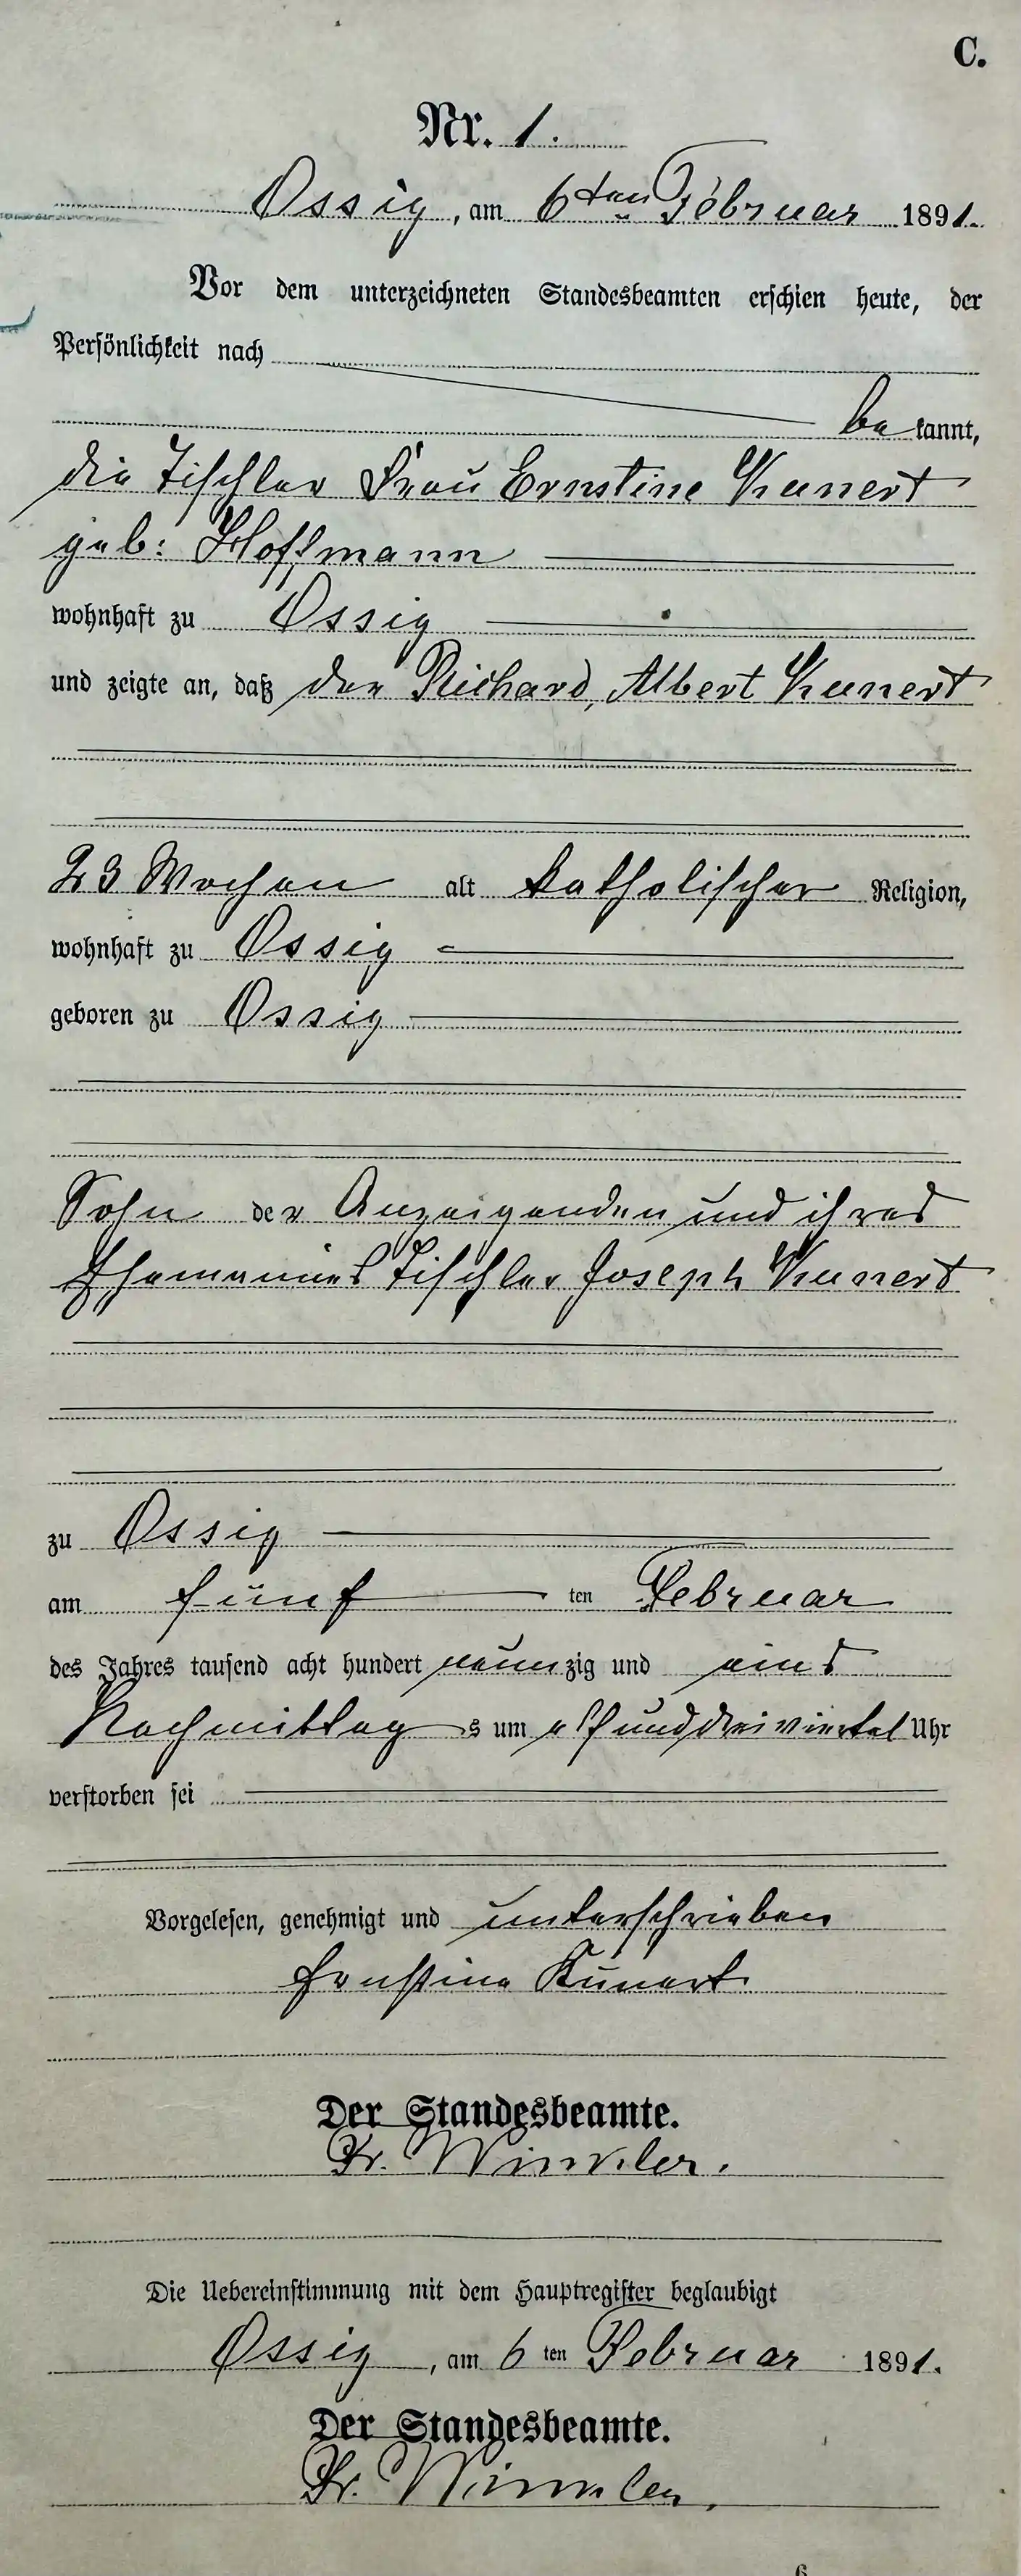 C.
Nr. 1.
Ossig, am 6ten Februar 1891.
Vor dem unterzeichneten Standesbeamten erschien heute, der
Persönlichkeit nach
bekannt,
die Tischler Frau Ernstine Kunert
geb: Hoffmann
wohnhaft zu Ossig
und zeigte an, daß der Richard, Albert Kunert
23 Wochen alt katholischer Religion,
wohnhaft zu Ossig
geboren zu Ossig
Sohn der Anzeigenden und ihres
Ehemannes Tischler Joseph Kunert
zu Ossig
am fünf ten Februar
des Jahres tausend acht hundert neunzig und eins
Nachmittags um elf und drei viertel Uhr
verstorben sei
Vorgelesen, genehmigt und unterschrieben
Ernstine Kunert
Der Standesbeamte.
Fr. Winkler.
Die Uebereinstimmung mit dem Hauptregister beglaubigt
Ossig, am 6 ten Februar 1891.
Der Standesbeamte.
Fr. Winkler.
6